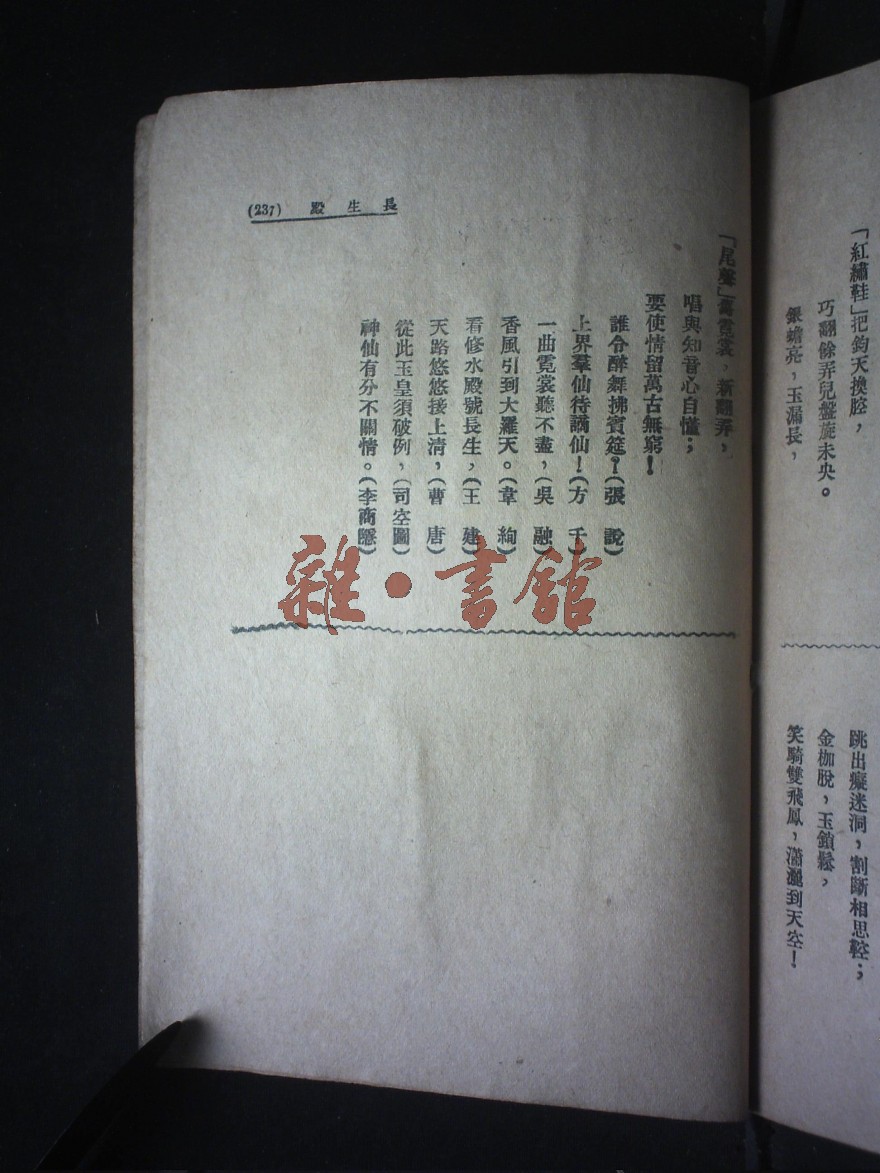 「紅繡鞋」把鈞天換腔，
巧翻餘弄兒盤旋未央。
銀蟾亮，玉漏長，
跳出癡迷洞，割斷相思鞚；
金枷脫，玉鎖鬆，
笑騎雙飛鳳，瀟灑到天空！
長生殿 (237)
「尾聲」舊霓裳，新翻弄，
唱與知音心自懂；
要使情留萬古無窮！
誰令醉舞拂賓筵？(張 說)
上界羣仙待謫仙！(方 干)
一曲霓裳聽不盡，(吳 融)
香風引到大羅天。(韋 絢)
看修水殿號長生，(王 建)
天路悠悠接上清，(曹 唐)
從此玉皇須破例，(司空圖)
神仙有分不關情。(李商隱)
雜·書館